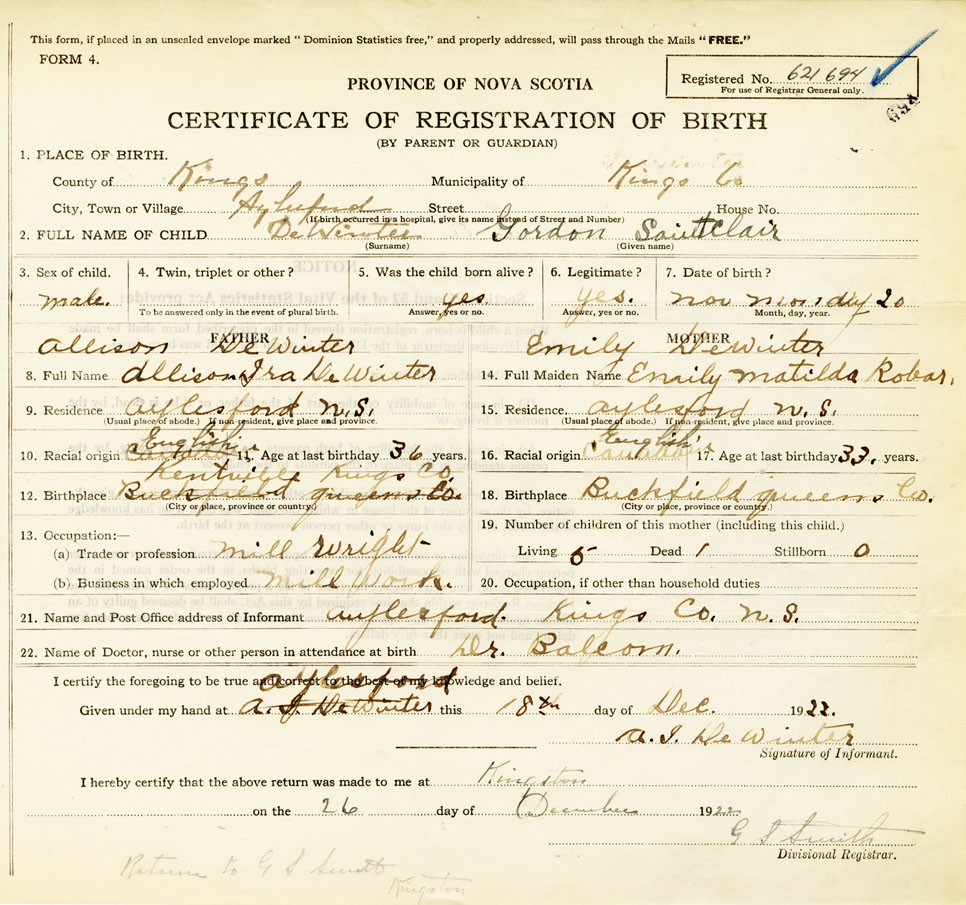 This form, if placed in an unsealed envelope marked "Dominion Statistics free," and properly addressed, will pass through the Mails "FREE."
FORM 4.
Registered No. 621694
For use of Registrar General only.
694
PROVINCE OF NOVA SCOTIA
CERTIFICATE OF REGISTRATION OF BIRTH
(BY PARENT OR GUARDIAN)
1. PLACE OF BIRTH.
County of Kings Municipality of Kings Co
City, Town or Village Aylesford Street House No.
(If birth occurred in a hospital, give its name instead of Street and Number)
2. FULL NAME OF CHILD DeWinter Gordon Saint Clair
(Surname) (Given name)
3. Sex of child. 4. Twin, triplet or other? 5. Was the child born alive? 6. Legitimate? 7. Date of birth?
male. yes yes. nov mon day 20
To be answered only in the event of plural birth. Answer, yes or no. Answer, yes or no. Month, day, year.
FATHER MOTHER
Allison DeWinter Emily DeWinter
8. Full Name Allison Ira DeWinter 14. Full Maiden Name Emily matilda Robar.
9. Residence aylesford N.S. 15. Residence. aylesford N.S.
(Usual place of abode.) If non-resident, give place and province. (Usual place of abode.) If non-resident, give place and province.
English English
10. Racial origin 11. Age at last birthday 36 years. 16. Racial origin 17. Age at last birthday 33. years.
Kentville Kings Co.
12. Birthplace Buckfield queens Co. 18. Birthplace Buckfield queens Co.
(City or place, province or country.) (City or place, province or country.)
19. Number of children of this mother (including this child.)
13. Occupation:—
(a) Trade or profession mill wright Living 5 Dead 1 Stillborn 0
(b) Business in which employed mill Work. 20. Occupation, if other than household duties
21. Name and Post Office address of Informant aylesford. Kings Co. N.S.
22. Name of Doctor, nurse or other person in attendance at birth Dr. Balcom.
I certify the foregoing to be true and correct to the best of my knowledge and belief.
aylesford
Given under my hand at A. I. DeWinter this 18th day of Dec. 1922.
A. I. DeWinter
Signature of Informant.
I hereby certify that the above return was made to me at Kingston
on the 26 day of December 1922
G S Smith
Divisional Registrar.
Return to G S Smith
Kingston